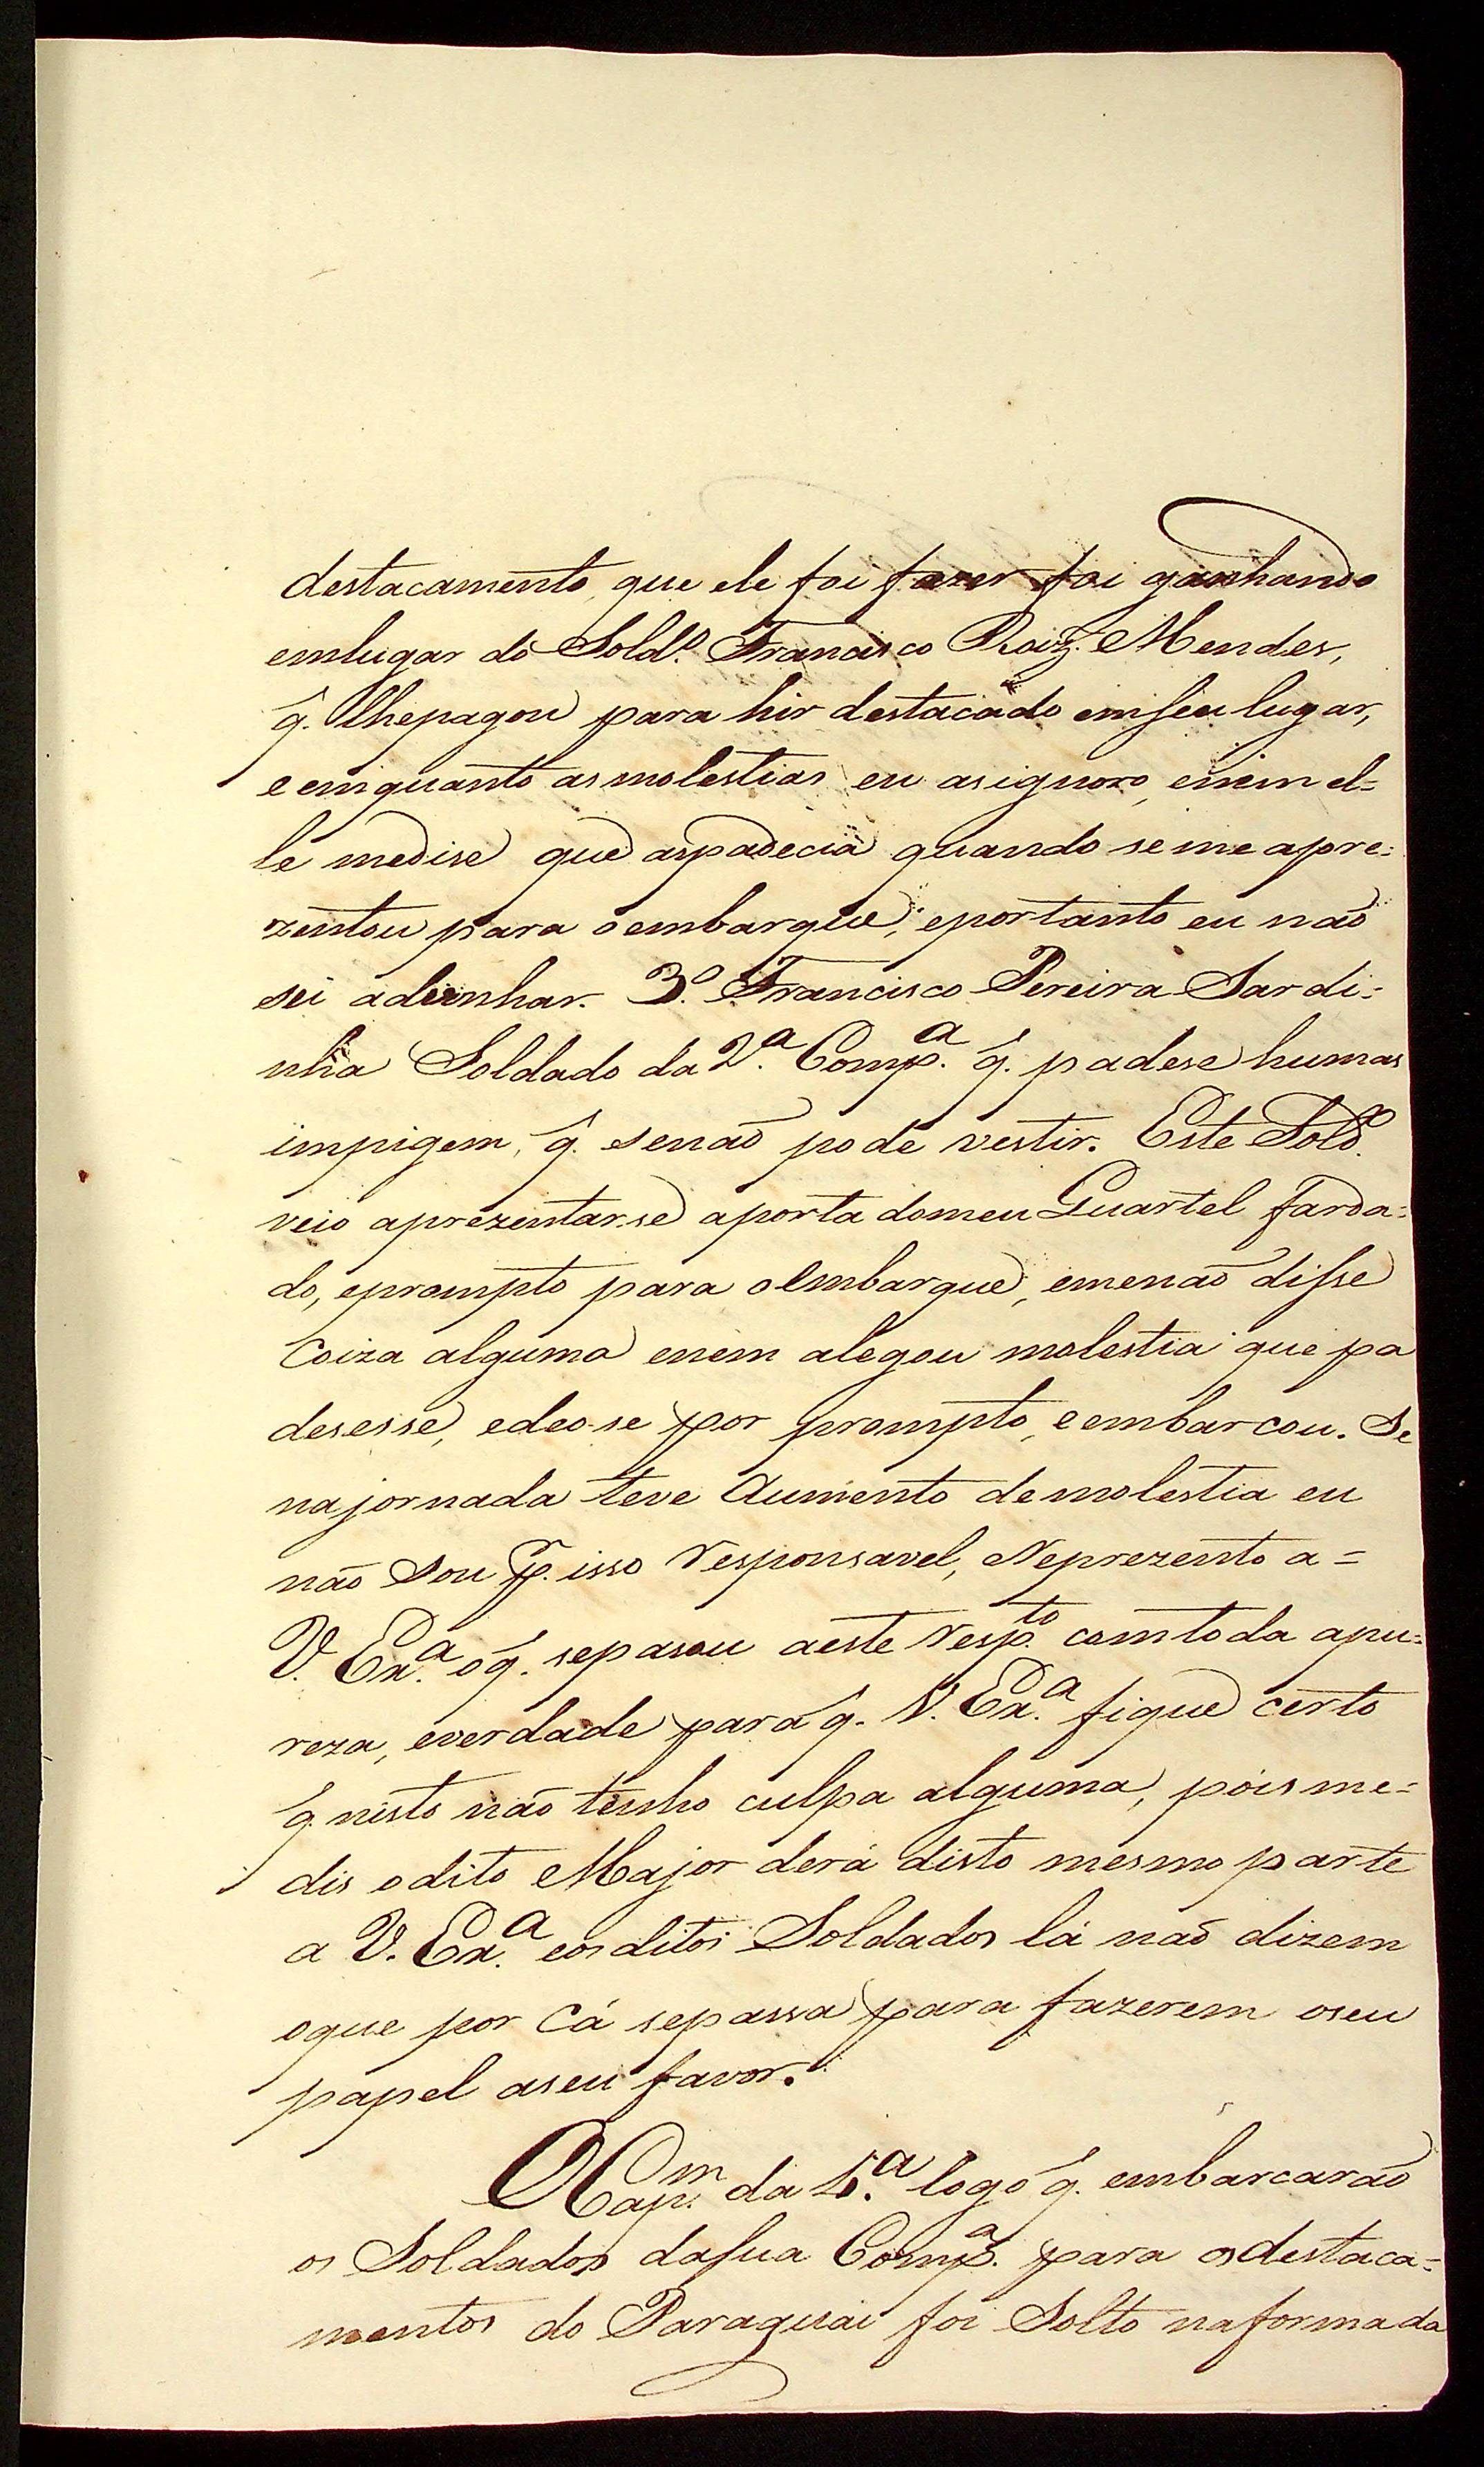 destacamento, que ele foi fazer foi ganhando
emlugar do Sold.º Francisco Roiz. Mendes,
q̃. lhepagou para hir destacado emseu lugar,
e emquanto asmolestias eu asignoro, enem el=
le medise que aspadecia quando seme apre=
zentou para oembarque; eportanto eu não
sei adevinhar. 3.º Francisco Pereira Sardi=
nha Soldado da 2.ª Comp.ª q̃. padese humas
impigem, q̃. senaõ pode vestir. Este Sold.º
veio aprezentarse aporta domeu Quartel farda=
do, eprompto para oembarque, emenaõ disse
Coiza alguma enem alegou molestia que pa
desesse, edeo-se por prompto, eembarcou. Se
najornada teve Aumento demolestia eu
não Sou p.r isso Responsavel, Reprezento a=
V. Ex.ª oq̃. sepasou aeste Resp.to comtoda apu=
reza, everdade para q̃. V. Ex.ª fique certo
q̃. nisto não tenho culpa alguma, pois me=
dis odito Major dera disto mesmo parte
a V. Ex.ª eosditos Soldados lá naõ dizem
oque por Cá sepassa para fazerem oseu
papel aseu favor.
OCap.m da 5.ª logo q̃. embarcaraõ
os Soldados dasua Comp.ª para osdestaca=
mentos do Paraguai foi Solto naformada